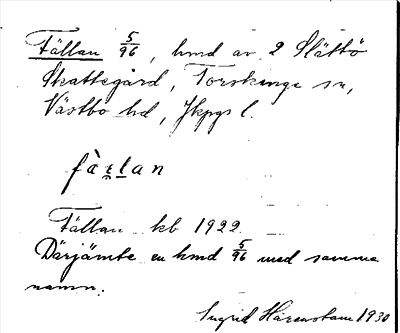 Fällan 5/96, hmd av 2 Slättö
Skattegård, Torskinge sn,
Västbo hd, Jkpgs l.
fàr̥l̥an
Fällan kb 1922.
Därjämte en hmd 5/96 med samma
namn.
Ingrid Härenstam 1930